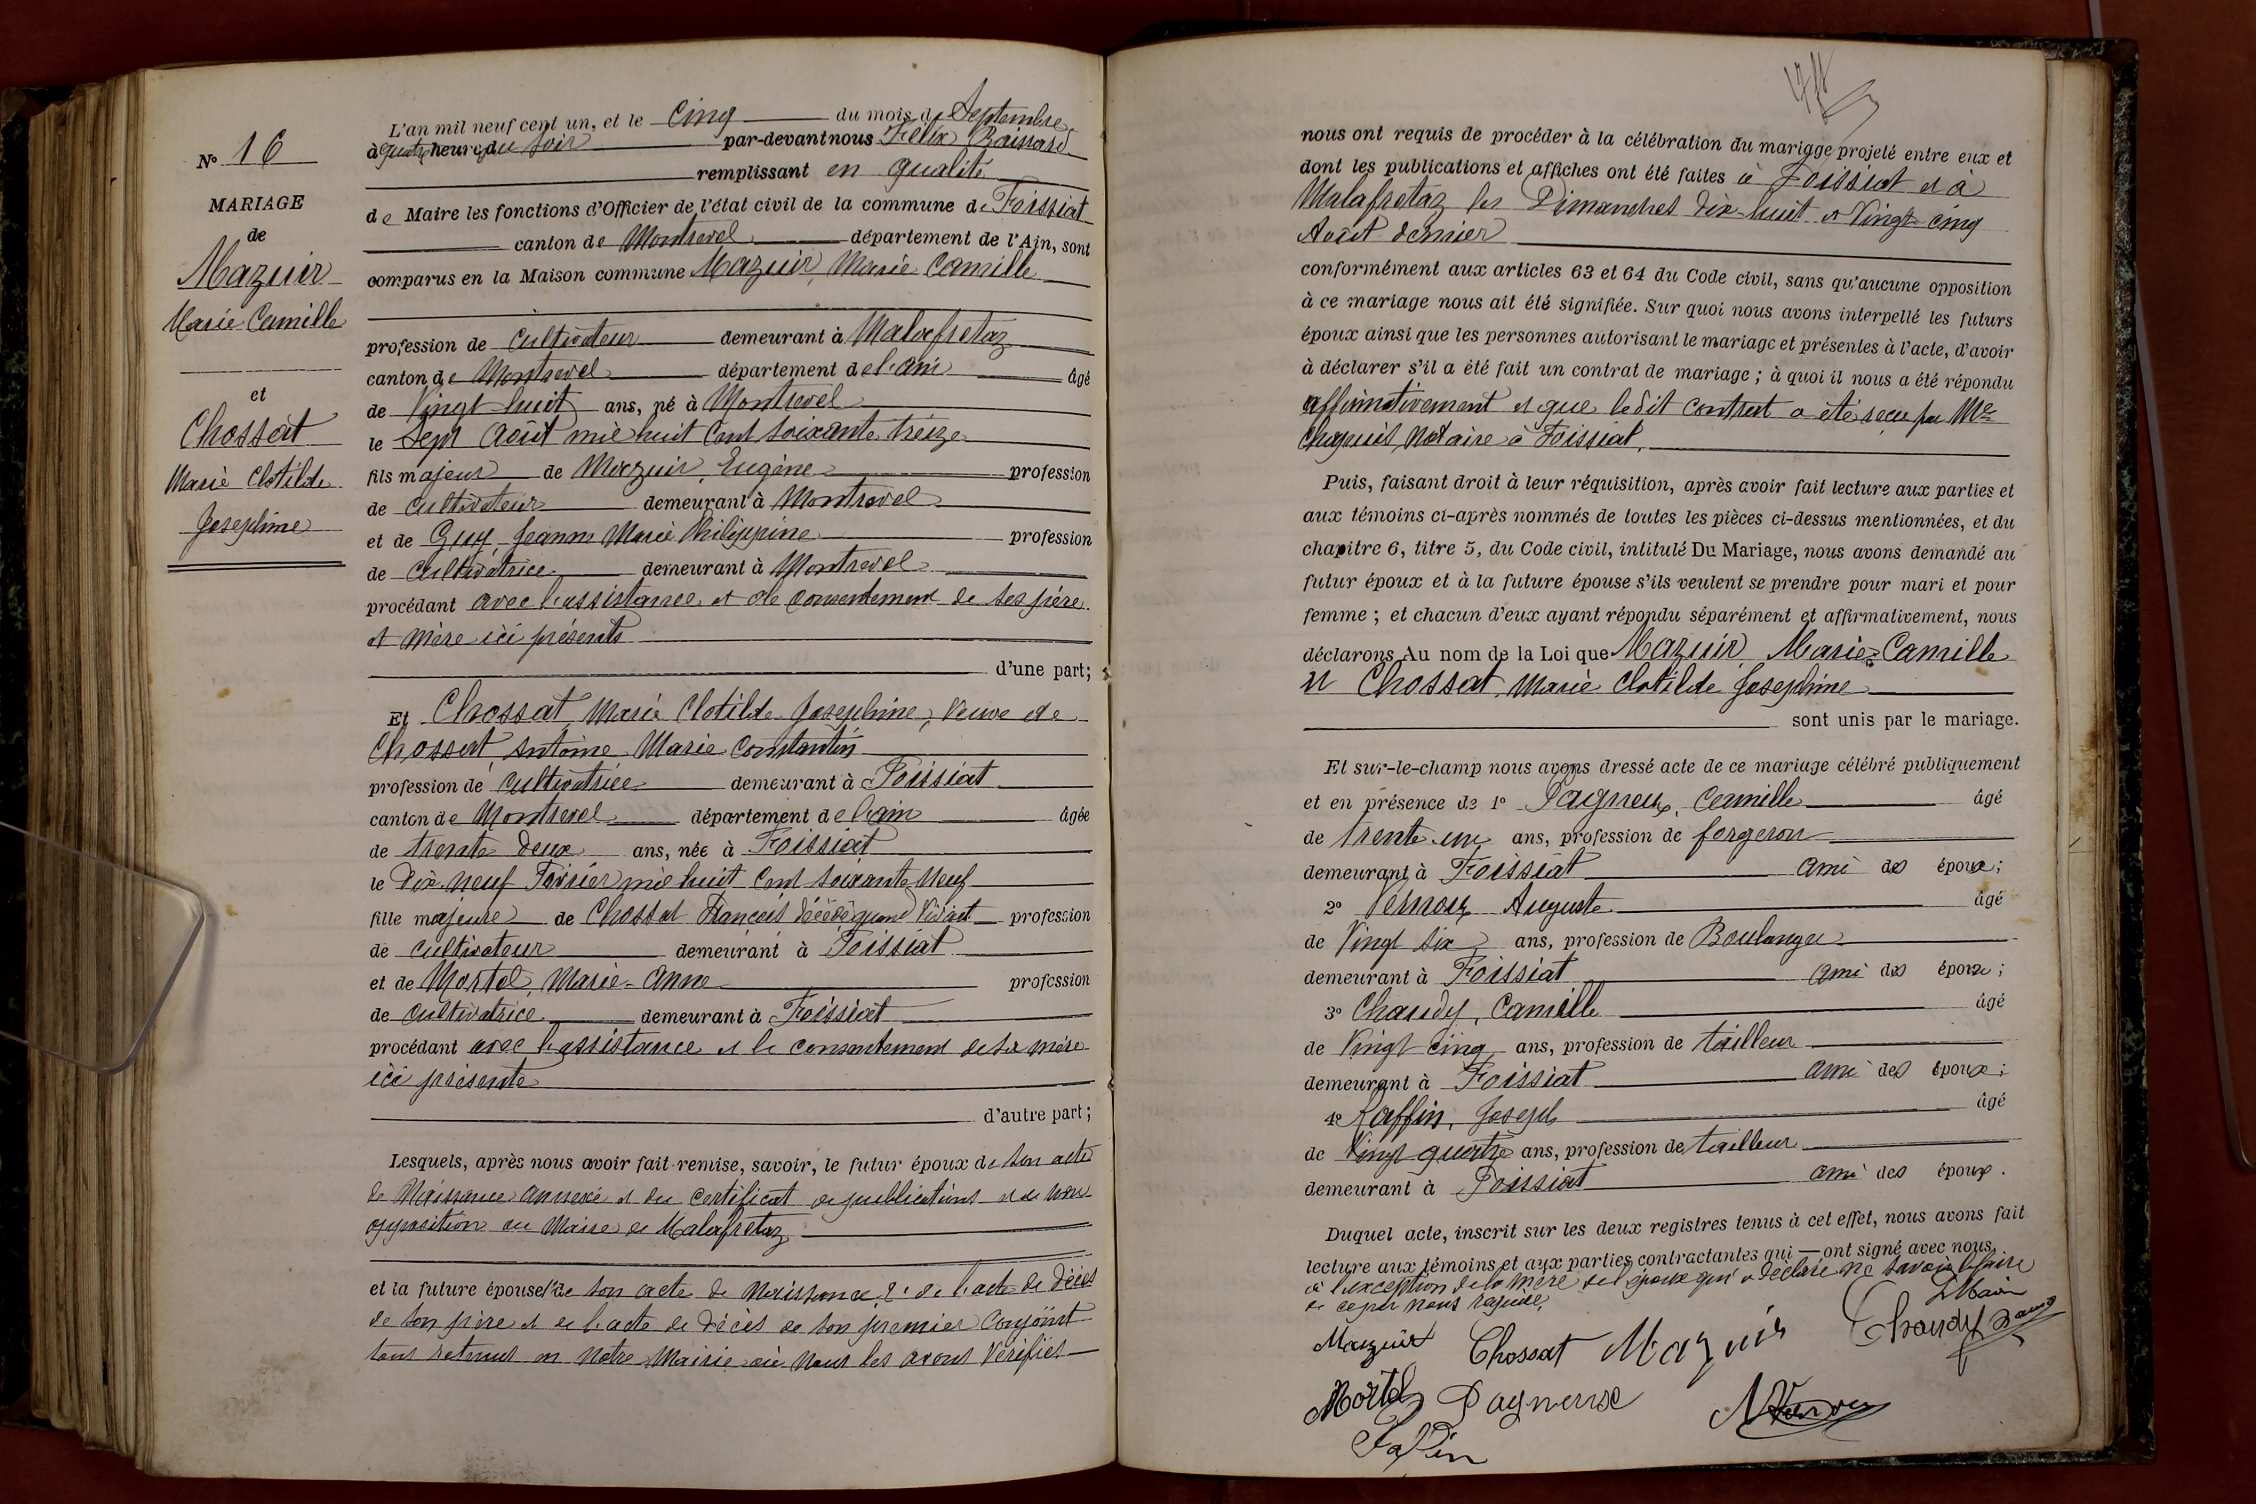 N° 16
MARIAGE
de
Mazuir
Marie Camille
et
Chossat
Marie Clotilde
Joséphine
L'an mil neuf cent un, et le cinq du mois de Septembre
à quatre heures du soir par-devant nous Félix
remplissant en qualité
de Maire les fonctions d'Officier de l'état civil de la commune de Foissiat
canton de Montrevel département de l'Ain, sont
comparus en la Maison commune Mazuir, Marie Camille
profession de cultivateur demeurant à Malafretaz
canton de Montrevel département de l'ain âgé
de Vingt huit ans, né à Montrevel
le Sept Août mil huit cent soixante treize
fils majeur de Mazuir, Eugène profession
de cultivateur demeurant à Montrevel
et de Guy, Jeanne Marie Philippine profession
de cultivatrice demeurant à Montrevel
procédant avec l'assistance et le consentement de ses père
et mère ici présents
d'une part;
Et Chossat, Marie Clotilde Joséphine, veuve de
Chossat, Antoine Marie Constantin
profession de cultivatrice demeurant à Foissiat
canton de Montrevel département de l'ain âgée
de trente deux ans, née à Foissiat
le Dix-neuf Février mil huit cent soixante-neuf
fille majeure de Chossat François décédé quand vivait profession
de cultivateur demeurant à Foissiat
et de Mortel, Marie-Anne profession
de cultivatrice demeurant à Foissiat
procédant avec l'assistance et le consentement de sa mère
ici présente
d'autre part;
Lesquels, après nous avoir fait remise, savoir, le futur époux de son acte
de Naissance annexé et du certificat de publications et de non
opposition du Maire de Malafretaz
et la future épouse 1° de son acte de Naissance, 2° de l'acte de décès
de son père et de l'acte de décès de son premier conjoint
tous retenus en notre Mairie où nous les avons vérifiés
nous ont requis de procéder à la célébration du mariage projeté entre eux et
dont les publications et affiches ont été faites à Foissiat et à
Malafretaz les Dimanches dix-huit et Vingt-cinq
Août dernier
conformément aux articles 63 et 64 du Code civil, sans qu'aucune opposition
à ce mariage nous ait été signifiée. Sur quoi nous avons interpellé les futurs
époux ainsi que les personnes autorisant le mariage et présentes à l'acte, d'avoir
à déclarer s'il a été fait un contrat de mariage; à quoi il nous a été répondu
affirmativement et que ledit contrat a été reçu par Me
Chapuis, Notaire à Foissiat,
Puis, faisant droit à leur réquisition, après avoir fait lecture aux parties et
aux témoins ci-après nommés de toutes les pièces ci-dessus mentionnées, et du
chapitre 6, titre 5, du Code civil, intitulé Du Mariage, nous avons demandé au
futur époux et à la future épouse s'ils veulent se prendre pour mari et pour
femme; et chacun d'eux ayant répondu séparément et affirmativement, nous
déclarons Au nom de la Loi que Mazuir, Marie-Camille
et Chossat, Marie Clotilde Joséphine
sont unis par le mariage.
Et sur-le-champ nous avons dressé acte de ce mariage célébré publiquement
et en présence de 1° Pagneux, Camille âgé
de trente-un ans, profession de forgeron
demeurant à Foissiat ami des époux;
2° Vernoux Auguste âgé
de Vingt six ans, profession de Boulanger
demeurant à Foissiat ami des époux;
3° Chaudy, Camille âgé
de Vingt cinq ans, profession de tailleur
demeurant à Foissiat ami des époux;
4° Raffin, Joseph âgé
de Vingt quatre ans, profession de tailleur
demeurant à Foissiat ami des époux.
Duquel acte, inscrit sur les deux registres tenus à cet effet, nous avons fait
lecture aux témoins et aux parties contractantes qui ont signé avec nous,
à l'exception de la mère de l'époux qui a déclaré ne savoir le faire
de ce par nous requise.
Mazuir Chossat Mazuir Chaudy
Mortel Pagneux